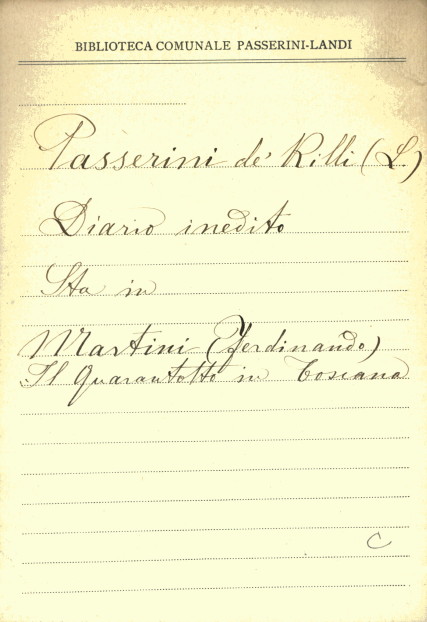 BIBLIOTECA COMUNALE PASSERINI-LANDI
Passerini de' Rilli (L.)
Diario inedito
Sta in
Martini (Ferdinando)
Il Quarantotto in Toscana
C